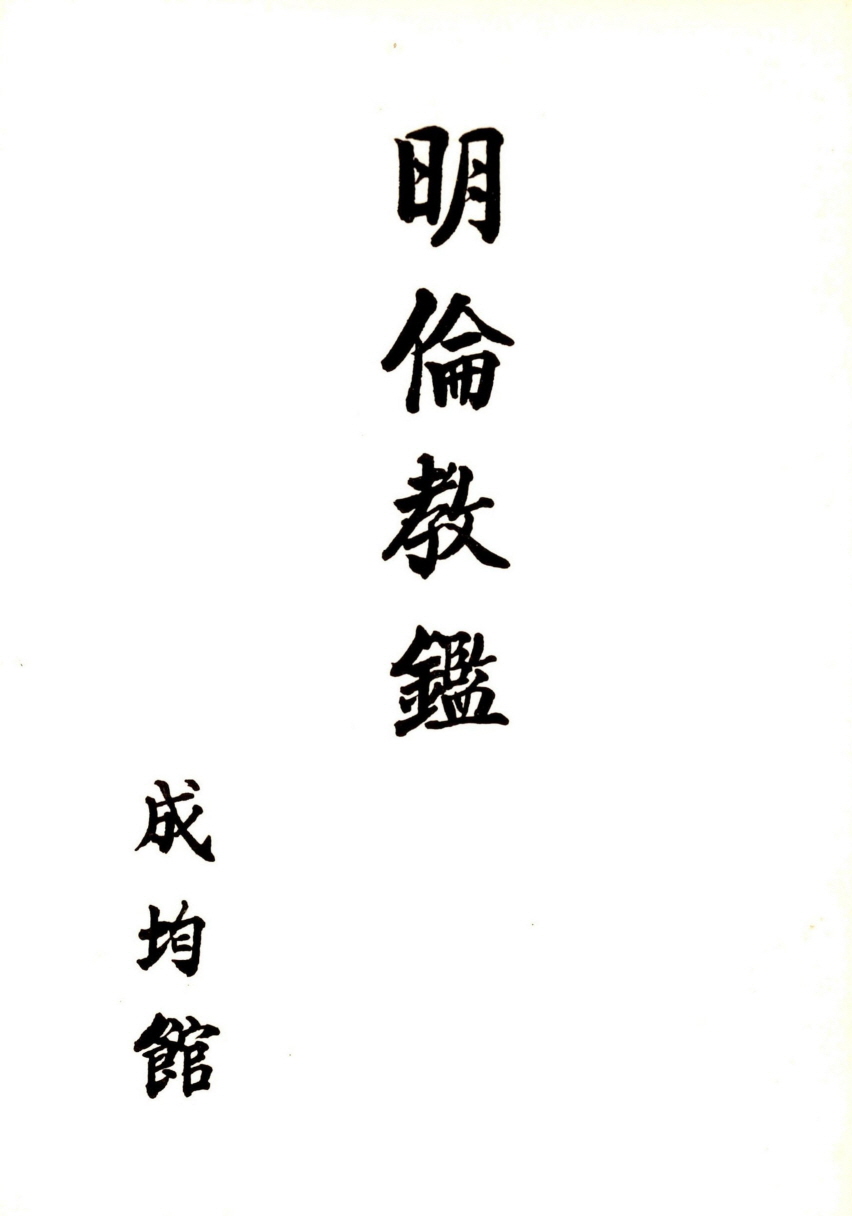 明倫教鑑
成均館